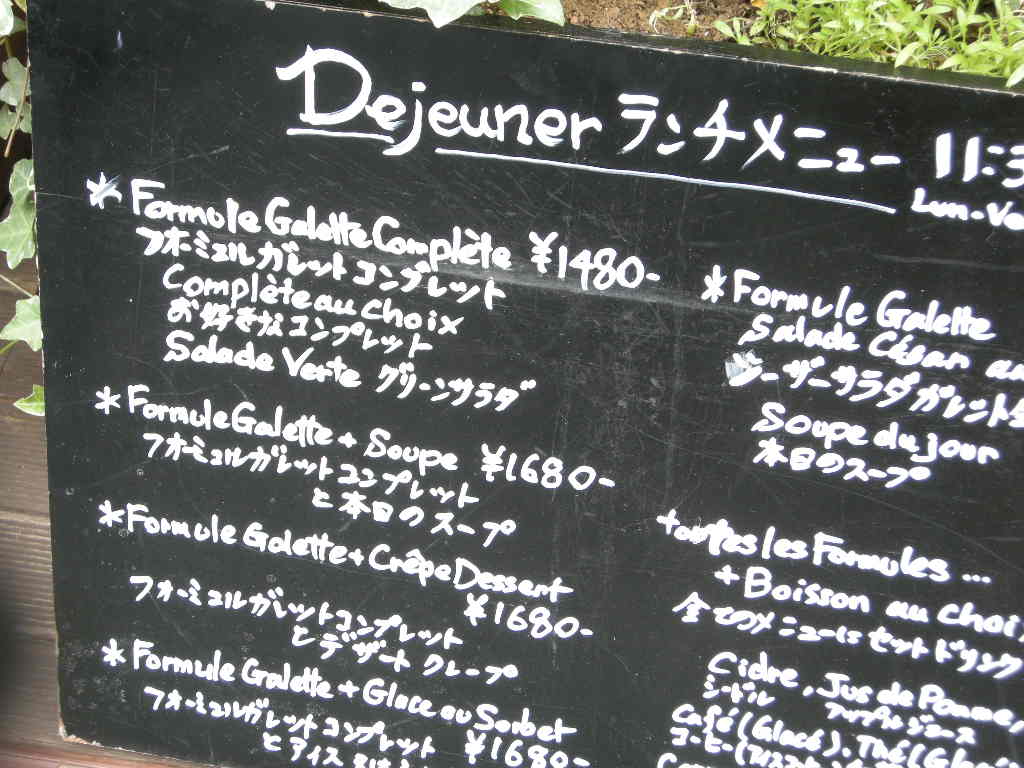 Dejeuner ランチメニュー 11:3
Lun-Ve
* Formule Galette Complète ¥1480-
フォーミュルガレットコンプレット
Complète au Choix
お好きなコンプレット
Salade Verte グリーンサラダ
* Formule Galette + Soupe ¥1680-
フォーミュルガレットコンプレット
と本日のスープ
* Formule Galette + Crêpe Dessert
¥1680-
フォーミュルガレットコンプレット
とデザートクレープ
* Formule Galette + Glace ou Sorbet
フォーミュルガレットコンプレット ¥1680-
とアイス
* Formule Galette
Salade César au
シーザーサラダガレット
Soupe du jour
本日のスープ
toutes les Formules ...
+ Boisson au Choi
全てのメニューにセットドリンク
Cidre, Jus de Pomme,
シードル アップルジュース
Café (Glacé), Thé (Gla
コーヒー(アイス